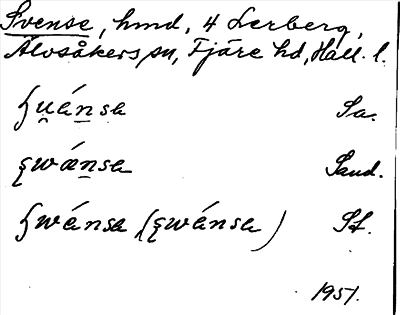 Svense, hmd, 4 Lerberg,
Älvsåkers sn, Fjäre hd, Hall. l.
ʂu̯áns̠a Sa.
ȿwǽnsa Sand.
ʂwánsa (ȿwánsa) Sf.
1951.